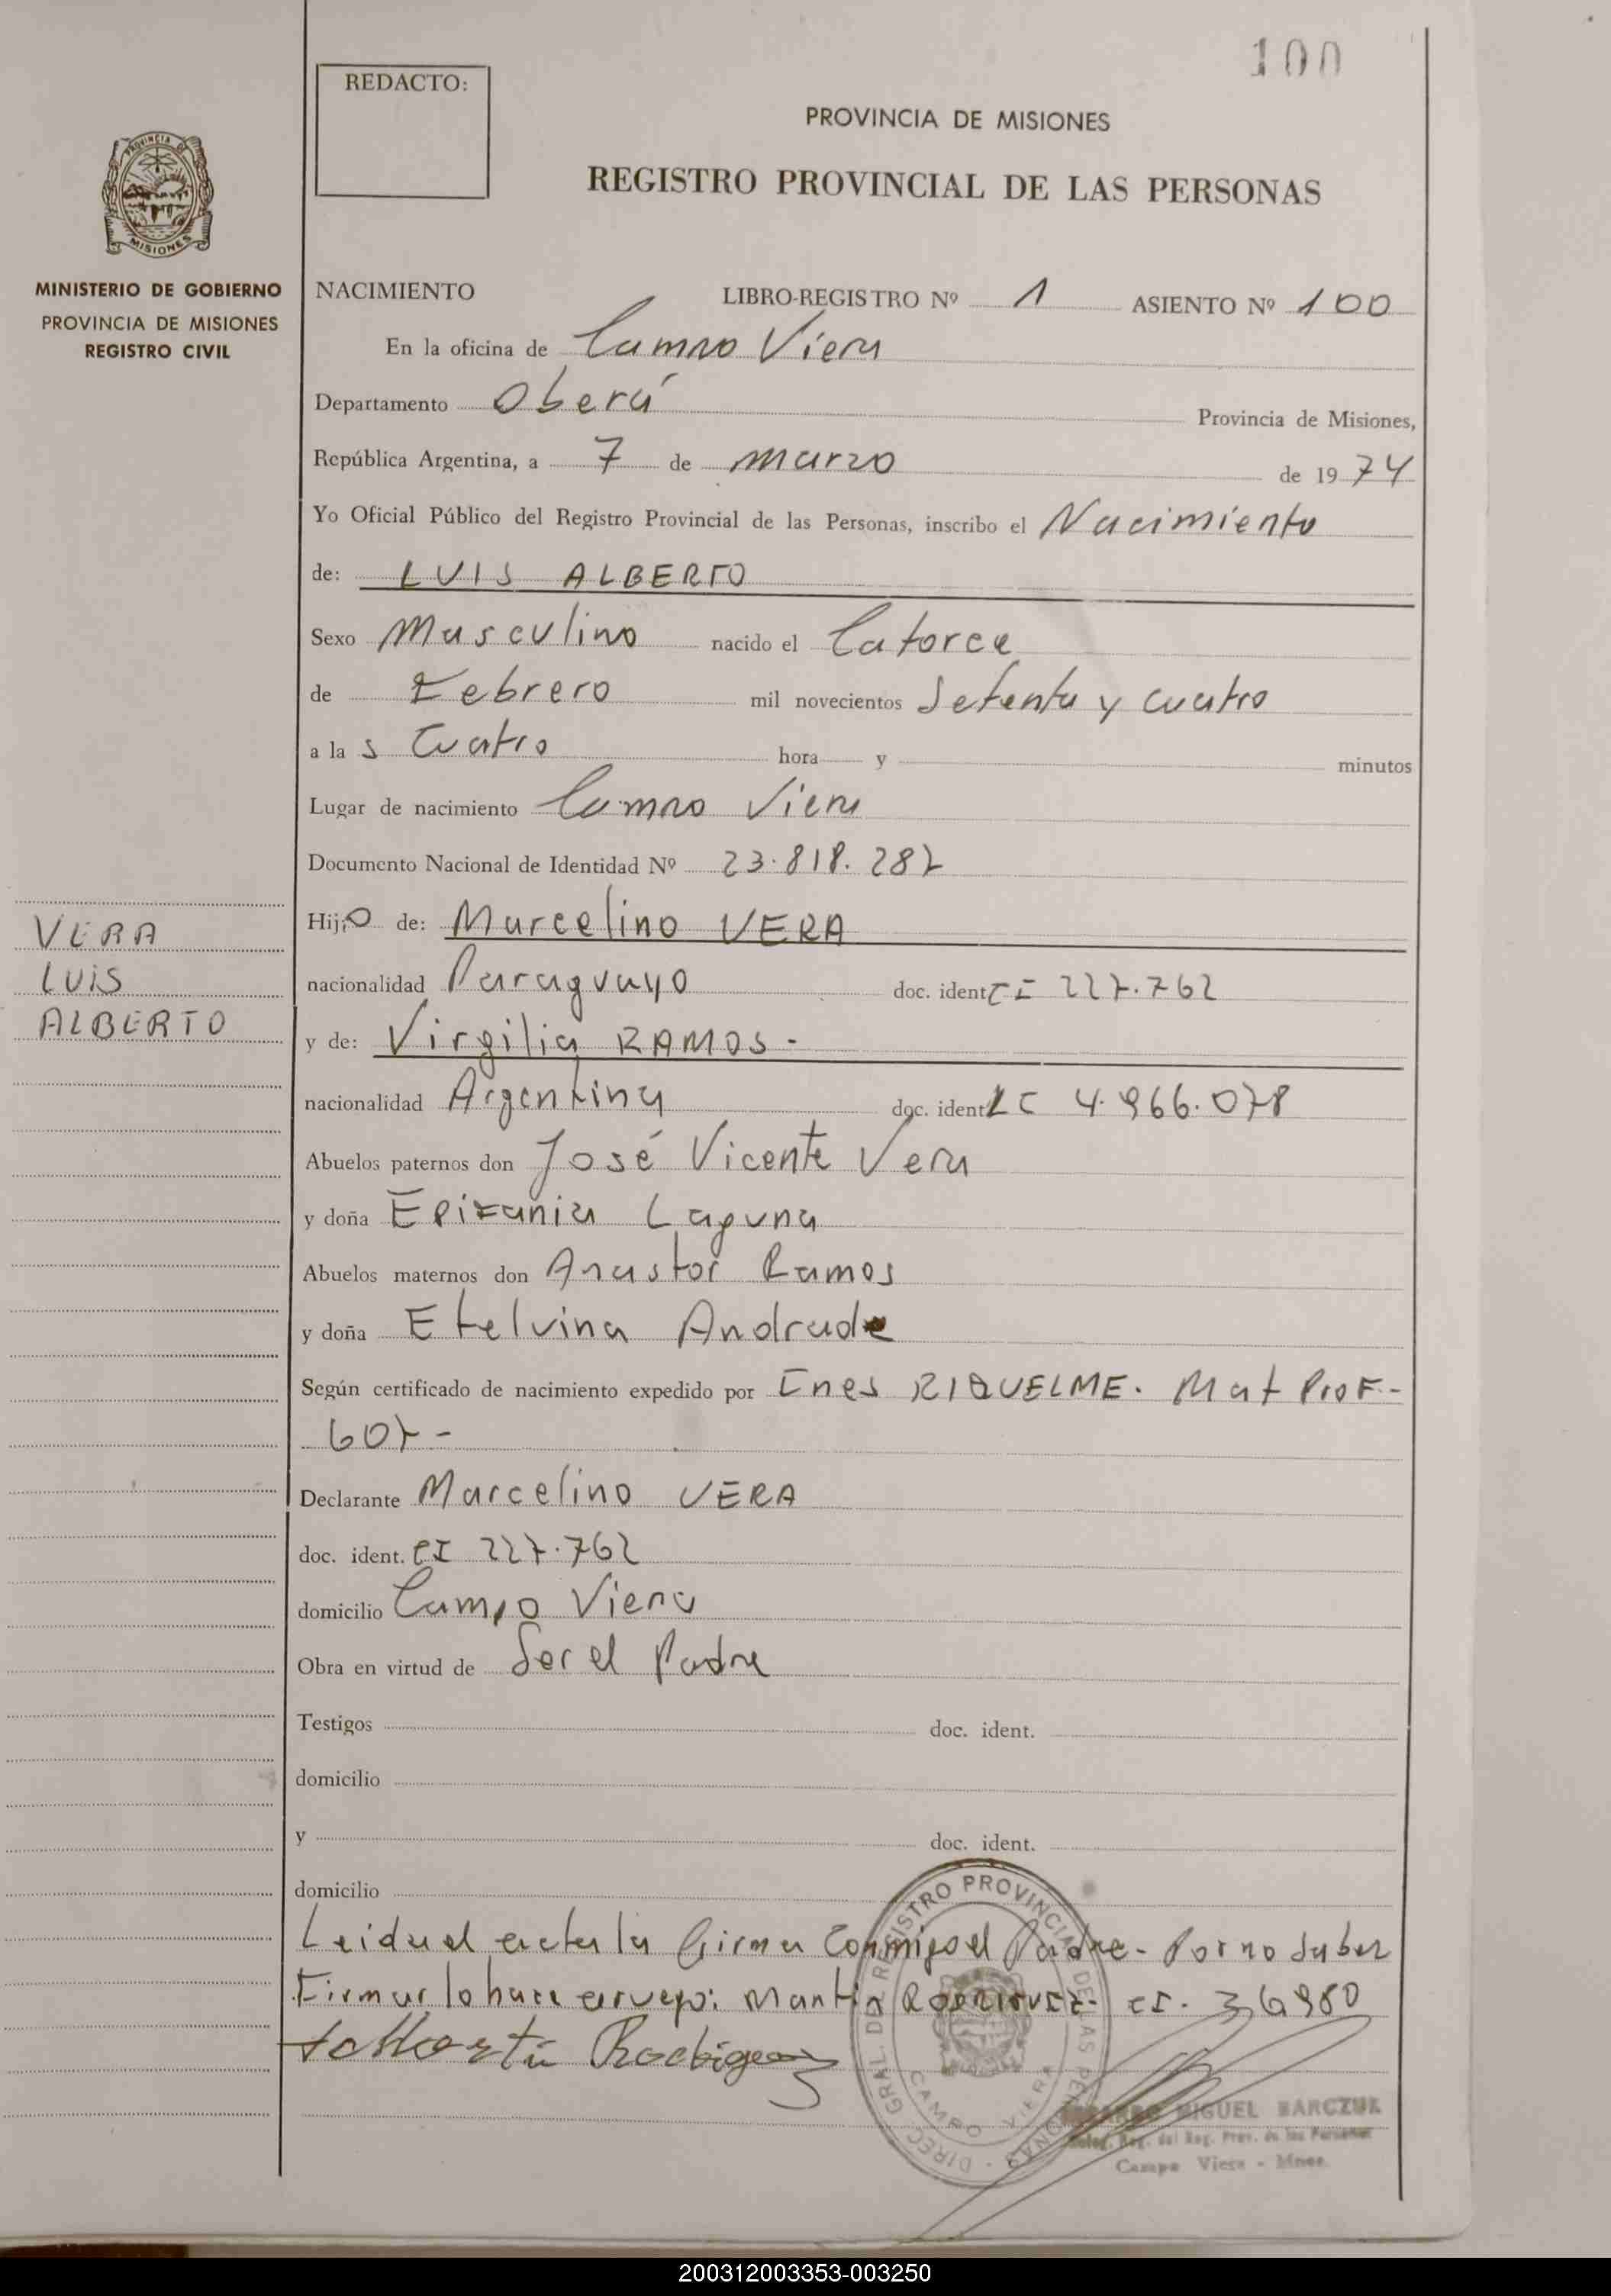 100
REDACTO:
PROVINCIA DE MISIONES
REGISTRO PROVINCIAL DE LAS PERSONAS
PROVINCIA DE
MISIONES
MINISTERIO DE GOBIERNO
PROVINCIA DE MISIONES
REGISTRO CIVIL
NACIMIENTO LIBRO-REGISTRO Nº 1 ASIENTO Nº 100
En la oficina de Campo Viera
Departamento Oberá Provincia de Misiones,
República Argentina, a 7 de marzo de 1974
Yo Oficial Público del Registro Provincial de las Personas, inscribo el Nacimiento
de: LUIS ALBERTO
Sexo Masculino nacido el Catorce
de Febrero mil novecientos Setenta y cuatro
a las Cuatro hora y minutos
Lugar de nacimiento Campo Viera
Documento Nacional de Identidad Nº 23.818.287
Hijo de: Marcelino VERA
VERA
LUIS
ALBERTO
nacionalidad Paraguayo doc. ident CI 227.762
y de: Virgilia RAMOS -
nacionalidad Argentina doc. ident LC 4.966.078
Abuelos paternos don José Vicente Vera
y doña Epifania Laguna
Abuelos maternos don Anastor Ramos
y doña Etelvina Andrade
Según certificado de nacimiento expedido por Ines RIQUELME. Mat Prof.-
607-
Declarante Marcelino VERA
doc. ident. CI 227.762
domicilio Campo Viera
Obra en virtud de Ser el Padre
Testigos doc. ident.
domicilio
y doc. ident.
domicilio
Leida el acta la firma Conmigo el Padre- Por no Saber
Firmar lo hace a ruego: CI. 36980
DIREC. GRAL. DEL REGISTRO PROVINCIAL DE LAS PERSONAS
CAMPO VIERA
MIGUEL BARCZUK
Deleg. Reg. del Reg. Prov. de las Personas
Campo Viera - Mnes.
200312003353-003250